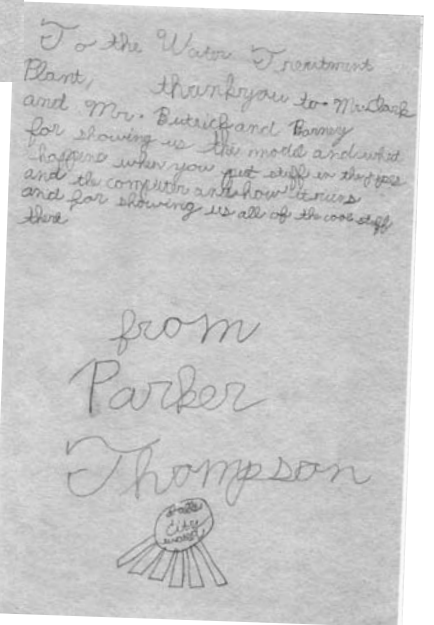 To the Water Treatment
Plant,
thankyou to Mr. Clark
and Mr. Butrick and Barney
for showing us the model and what
happens when you put stuff in the pipes
and the computer and how it runs
and for showing us all of the cool stuff
there
from
Parker
Thompson
City